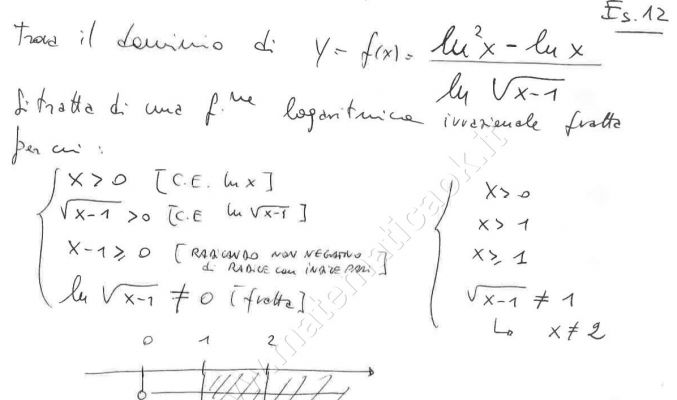 Es. 12
Trova il dominio di y = f(x) = (ln²x - ln x) / (ln √(x-1))
Si tratta di una f.ne logaritmica irrazionale fratta
per cui :
x > 0 [C.E. ln x]
√(x-1) > 0 [C.E ln √(x-1)]
x-1 ⩾ 0 [RADICANDO NON NEGATIVO
di RADICE con INDICE PARI]
ln √(x-1) ≠ 0 [fratta]
x > 0
x > 1
x ⩾ 1
√(x-1) ≠ 1
↳ x ≠ 2
0 1 2
www.matematicaok.it